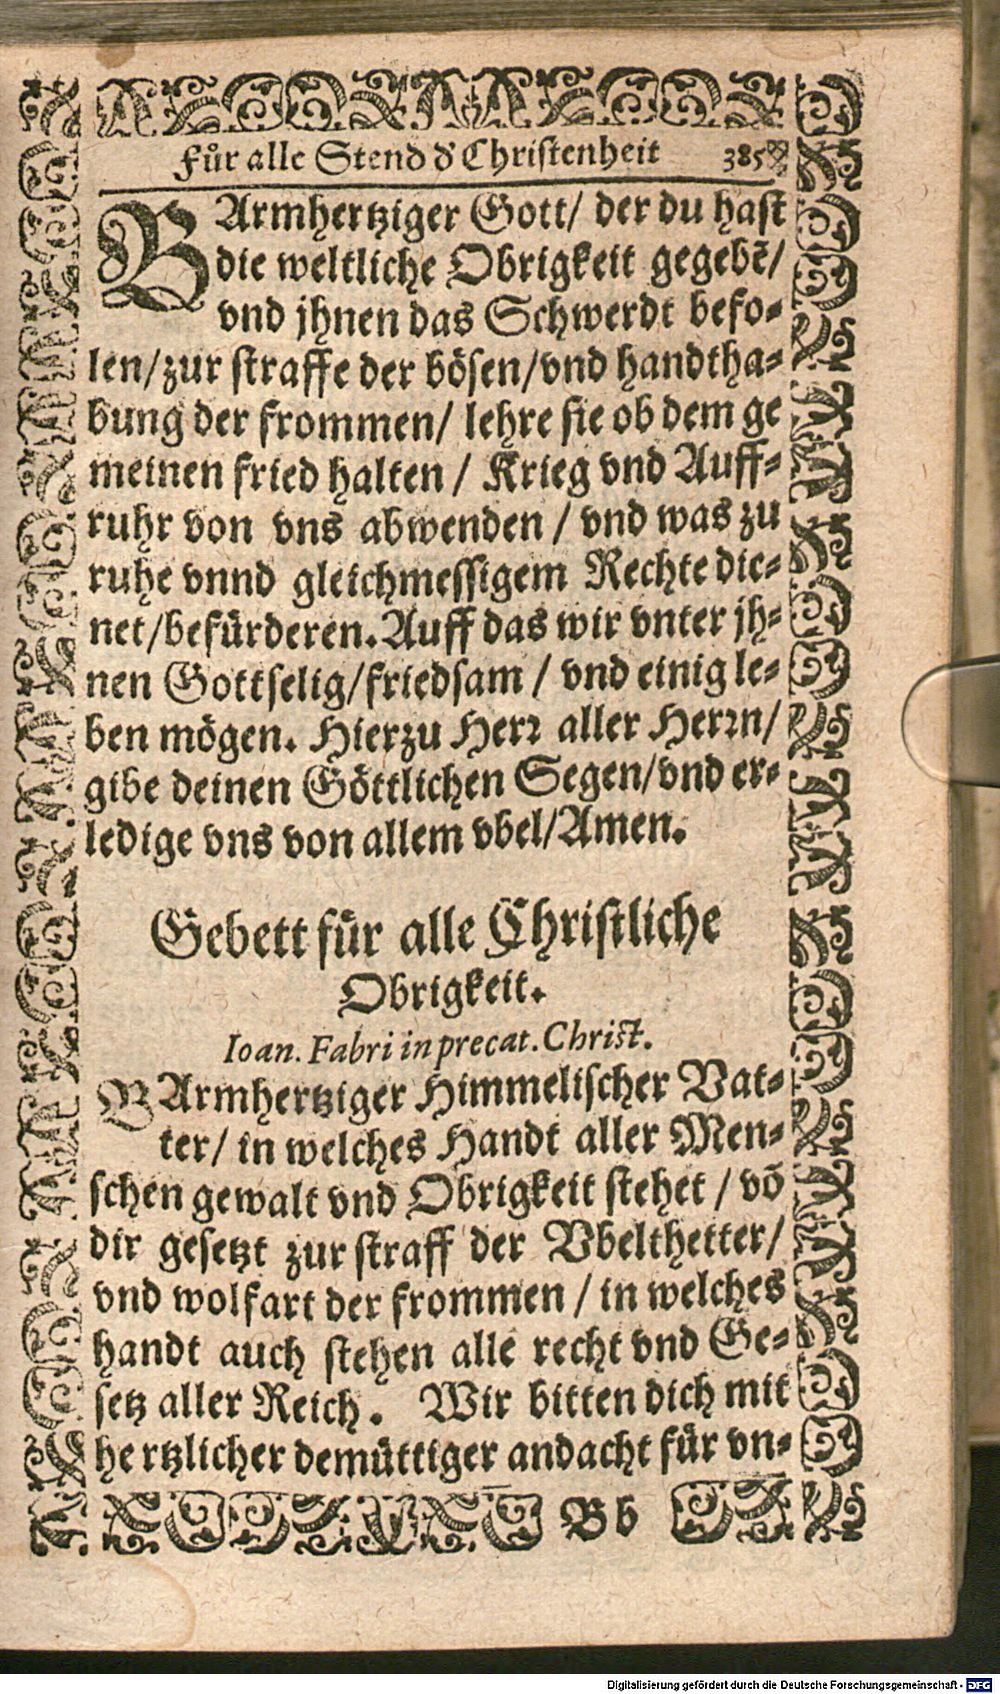 Für alle Stend d' Christenheit 385
BArmhertziger Gott/ der du hast
die weltliche Obrigkeit gegebē/
vnd jhnen das Schwerdt befo-
len/zur straffe der bösen/vnd handtha-
bung der frommen/ lehre sie ob dem ge
meinen fried halten / Krieg vnd Auff-
ruhr von vns abwenden / vnd was zu
ruhe vnnd gleichmessigem Rechte die-
net/befürderen. Auff das wir vnter jh-
nen Gottselig/friedsam / vnd einig le-
ben mögen. Hierzu Herr aller Herrn/
gibe deinen Göttlichen Segen/vnd er-
ledige vns von allem vbel/Amen.
Gebett für alle Christliche
Obrigkeit.
Ioan. Fabri in precat. Christ.
BArmhertziger Himmelischer Vat-
ter/ in welches Handt aller Men-
schen gewalt vnd Obrigkeit stehet / vō
dir gesetzt zur straff der Vbelthetter/
vnd wolfart der frommen / in welches
handt auch stehen alle recht vnd Ge-
setz aller Reich. Wir bitten dich mit
hertzlicher demüttiger andacht für vn-
Bb
Digitalisierung gefördert durch die Deutsche Forschungsgemeinschaft - DFG